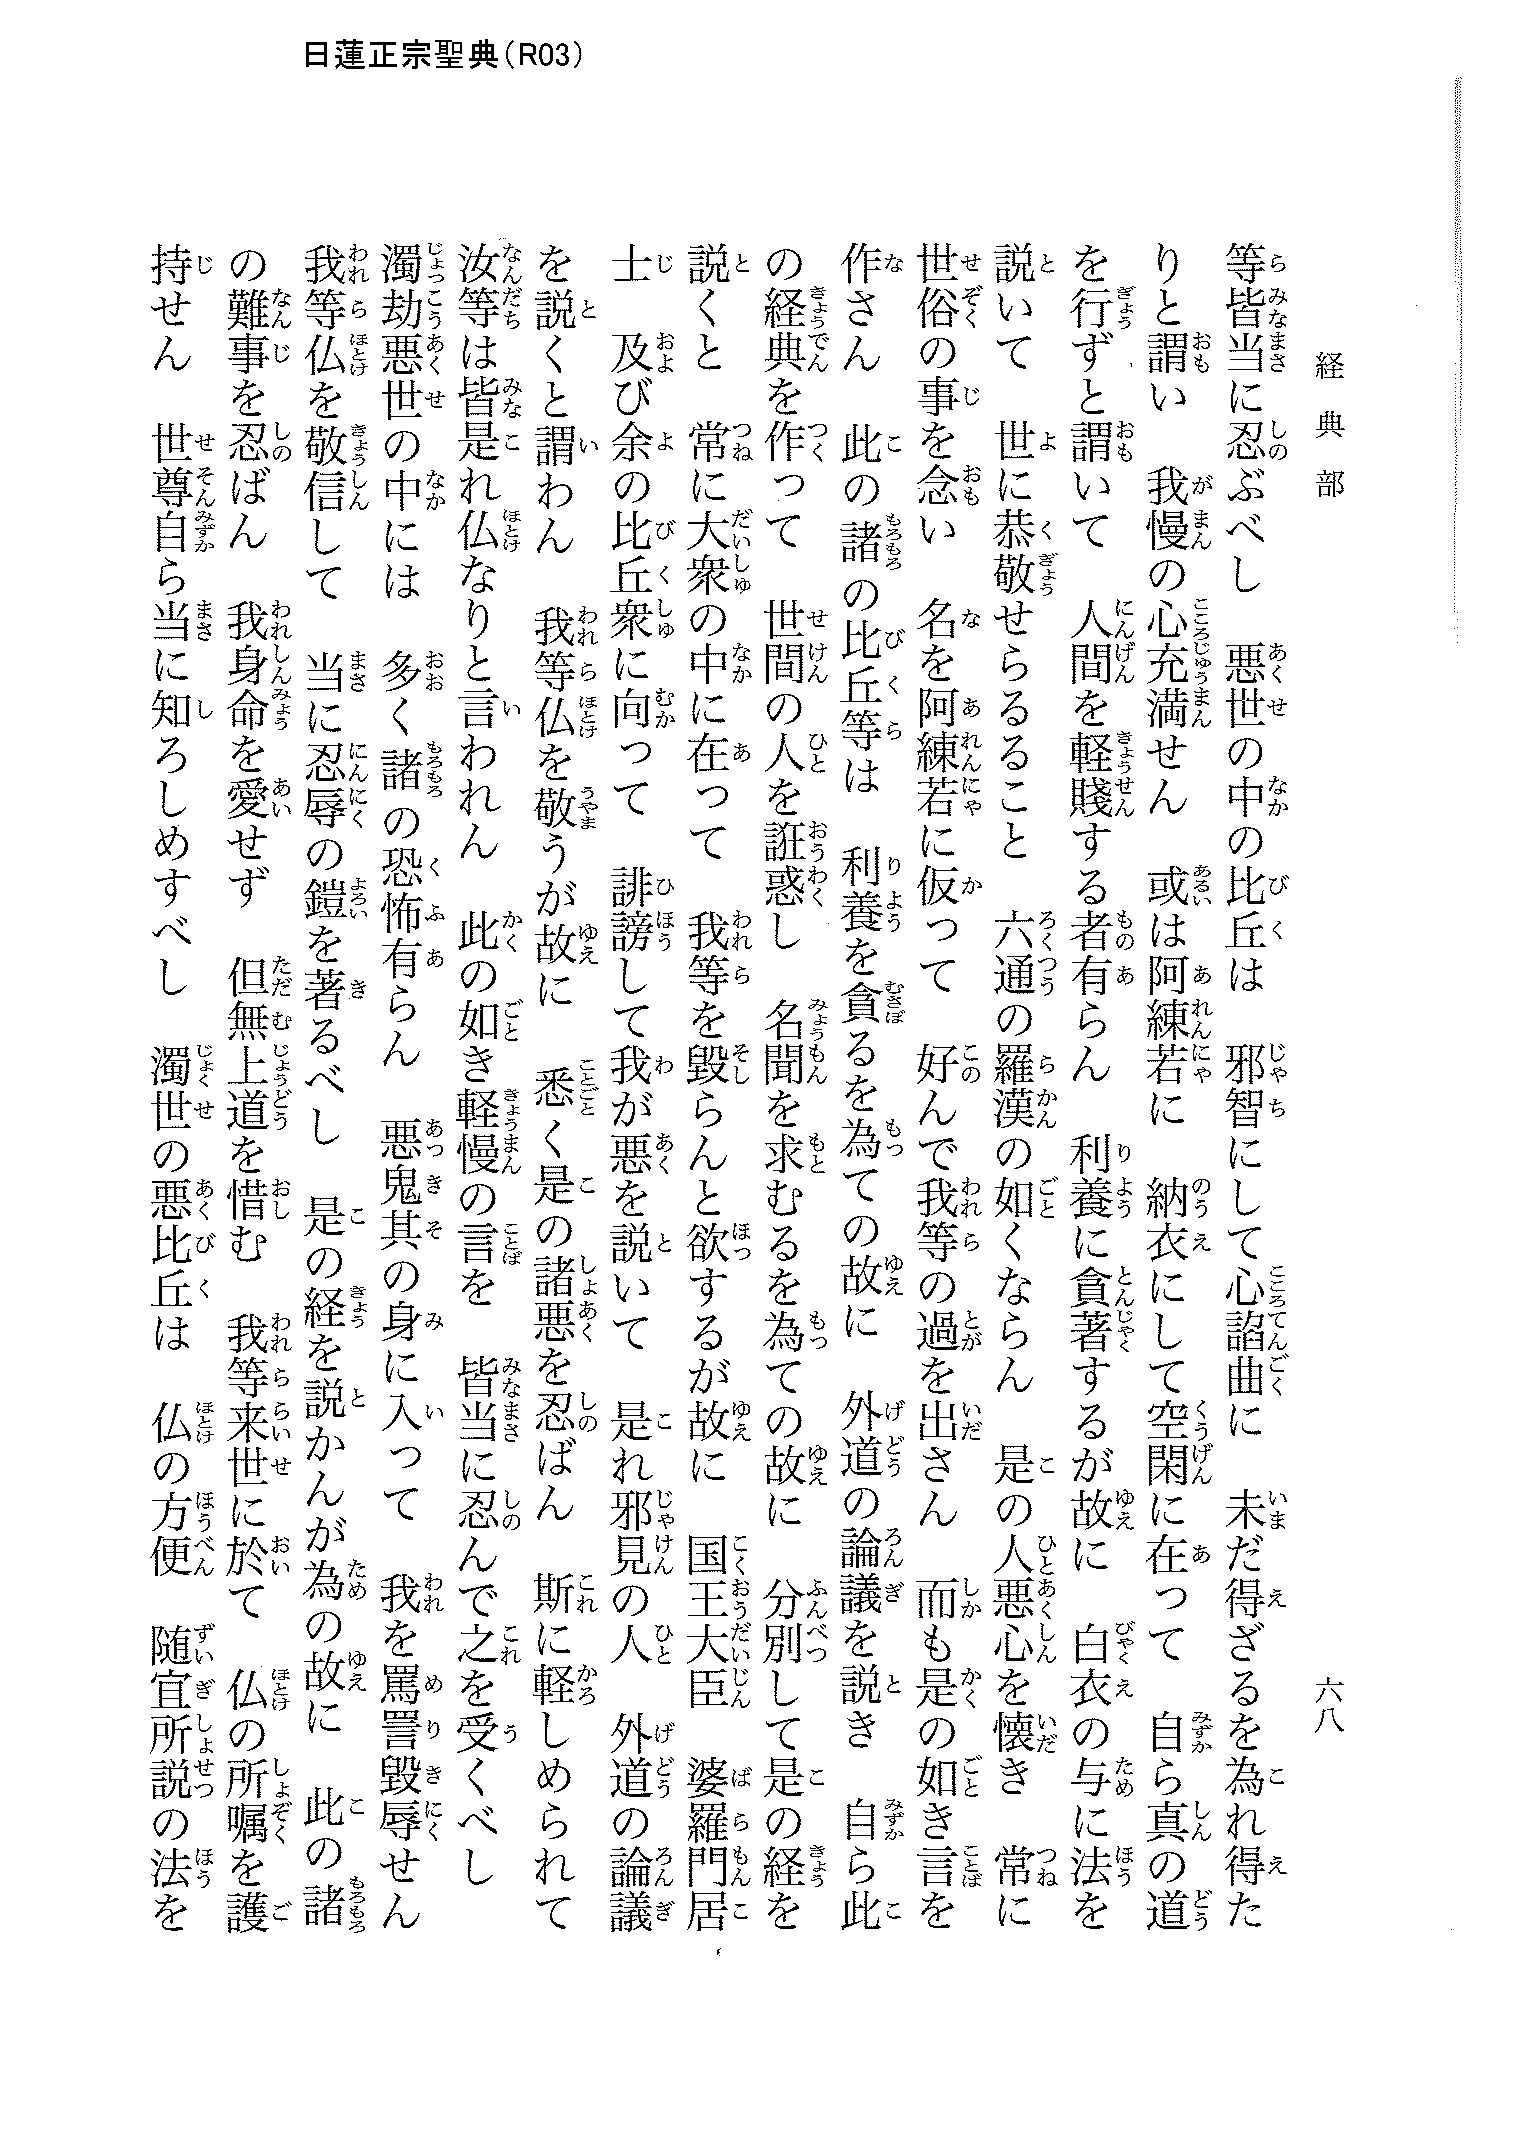 日蓮正宗聖典（R03）
経典部
六八
等皆当に忍ぶべし　悪世の中の比丘は　邪智にして心諂曲に　未だ得ざるを為れ得た
りと謂い　我慢の心充満せん　或は阿練若に　納衣にして空閑に在って　自ら真の道
を行ずと謂いて　人間を軽賤する者有らん　利養に貪著するが故に　白衣の与に法を
説いて　世に恭敬せらるること　六通の羅漢の如くならん　是の人悪心を懐き　常に
世俗の事を念い　名を阿練若に仮って　好んで我等の過を出さん　而も是の如き言を
作さん　此の諸の比丘等は　利養を貪るを為ての故に　外道の論議を説き　自ら此
の経典を作って　世間の人を誑惑し　名聞を求むるを為ての故に　分別して是の経を
説くと　常に大衆の中に在って　我等を毀らんと欲するが故に　国王大臣　婆羅門居
士　及び余の比丘衆に向って　誹謗して我が悪を説いて　是れ邪見の人　外道の論議
を説くと謂わん　我等仏を敬うが故に　悉く是の諸悪を忍ばん　斯に軽しめられて
汝等は皆是れ仏なりと言われん　此の如き軽慢の言を　皆当に忍んで之を受くべし
濁劫悪世の中には　多く諸の恐怖有らん　悪鬼其の身に入って　我を罵詈毀辱せん
我等仏を敬信して　当に忍辱の鎧を著るべし　是の経を説かんが為の故に　此の諸
の難事を忍ばん　我身命を愛せず　但無上道を惜む　我等来世に於て　仏の所嘱を護
持せん　世尊自ら当に知ろしめすべし　濁世の悪比丘は　仏の方便　随宜所説の法を